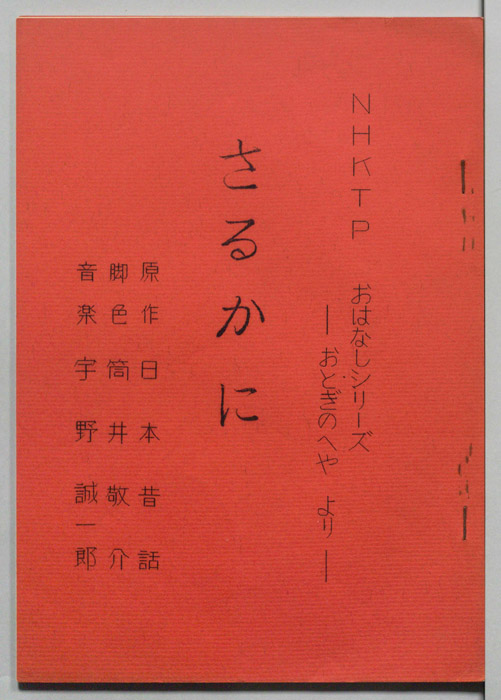 NHKTP おはなしシリーズ
― おとぎのへや より ―
さるかに
原作 日本昔話
脚色 筒井敬介
音楽 宇野誠一郎